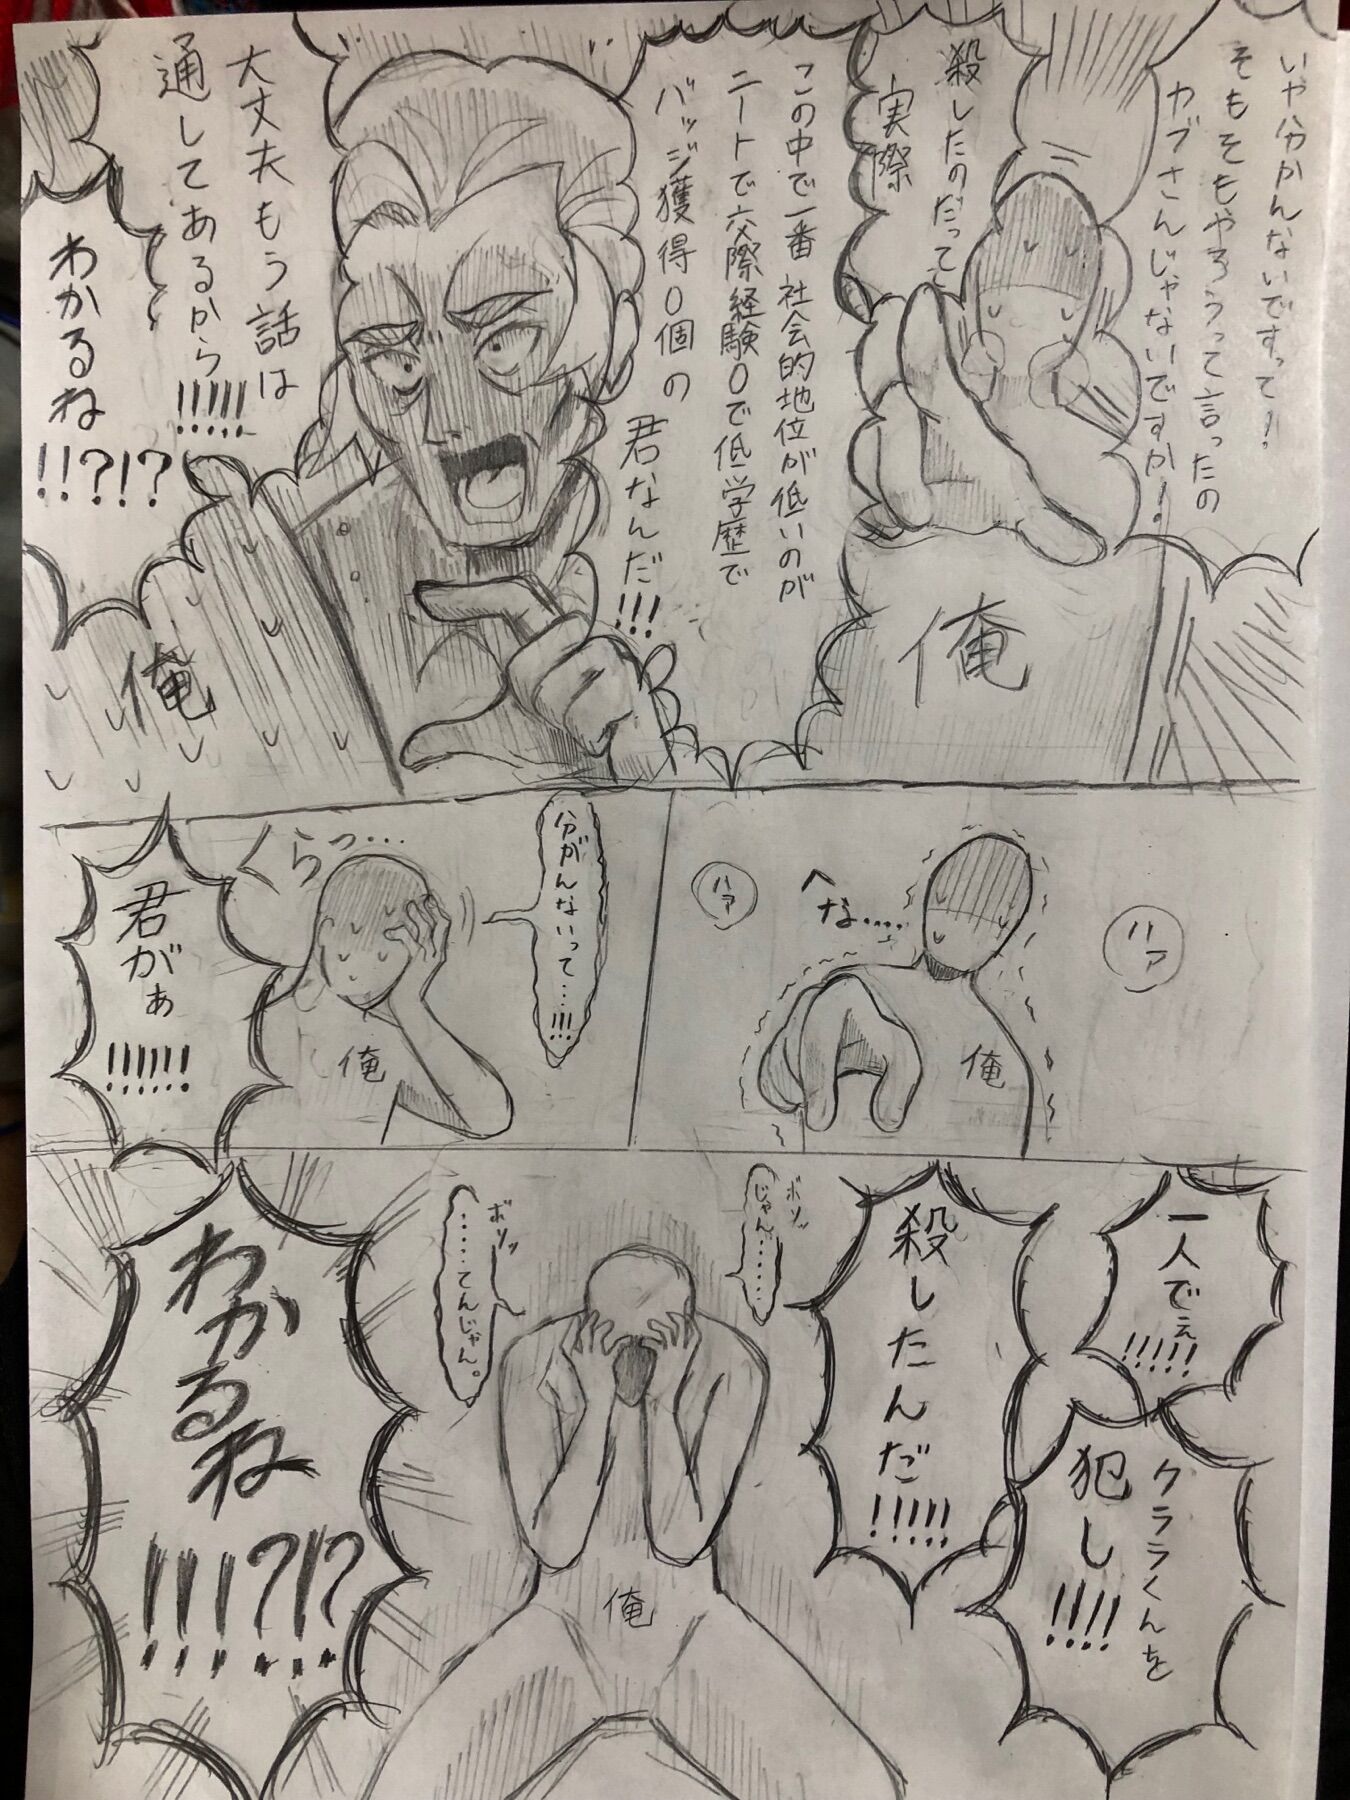 いや分かんないですって!
そもそもやろうって言ったの
カブさんじゃないですか!
殺したのだって
実際
俺
この中で一番社会的地位が低いのが
ニートで交際経験0で低学歴で
バッジ獲得0個の
君なんだ!!!
大丈夫もう話は
通してあるから!!!!!
わかるね
!!?!?
俺
ハァ
ヘな....
ハァ
俺
分がんないって...!!!
くらっ...
俺
君がぁ
!!!!!!
一人でぇ
!!!!!
クララくんを
犯し!!!!
殺したんだ!!!!!
ボソッ
じゃん......
ボソッ
....てんじゃん。
俺
わかるね
!!!?!?